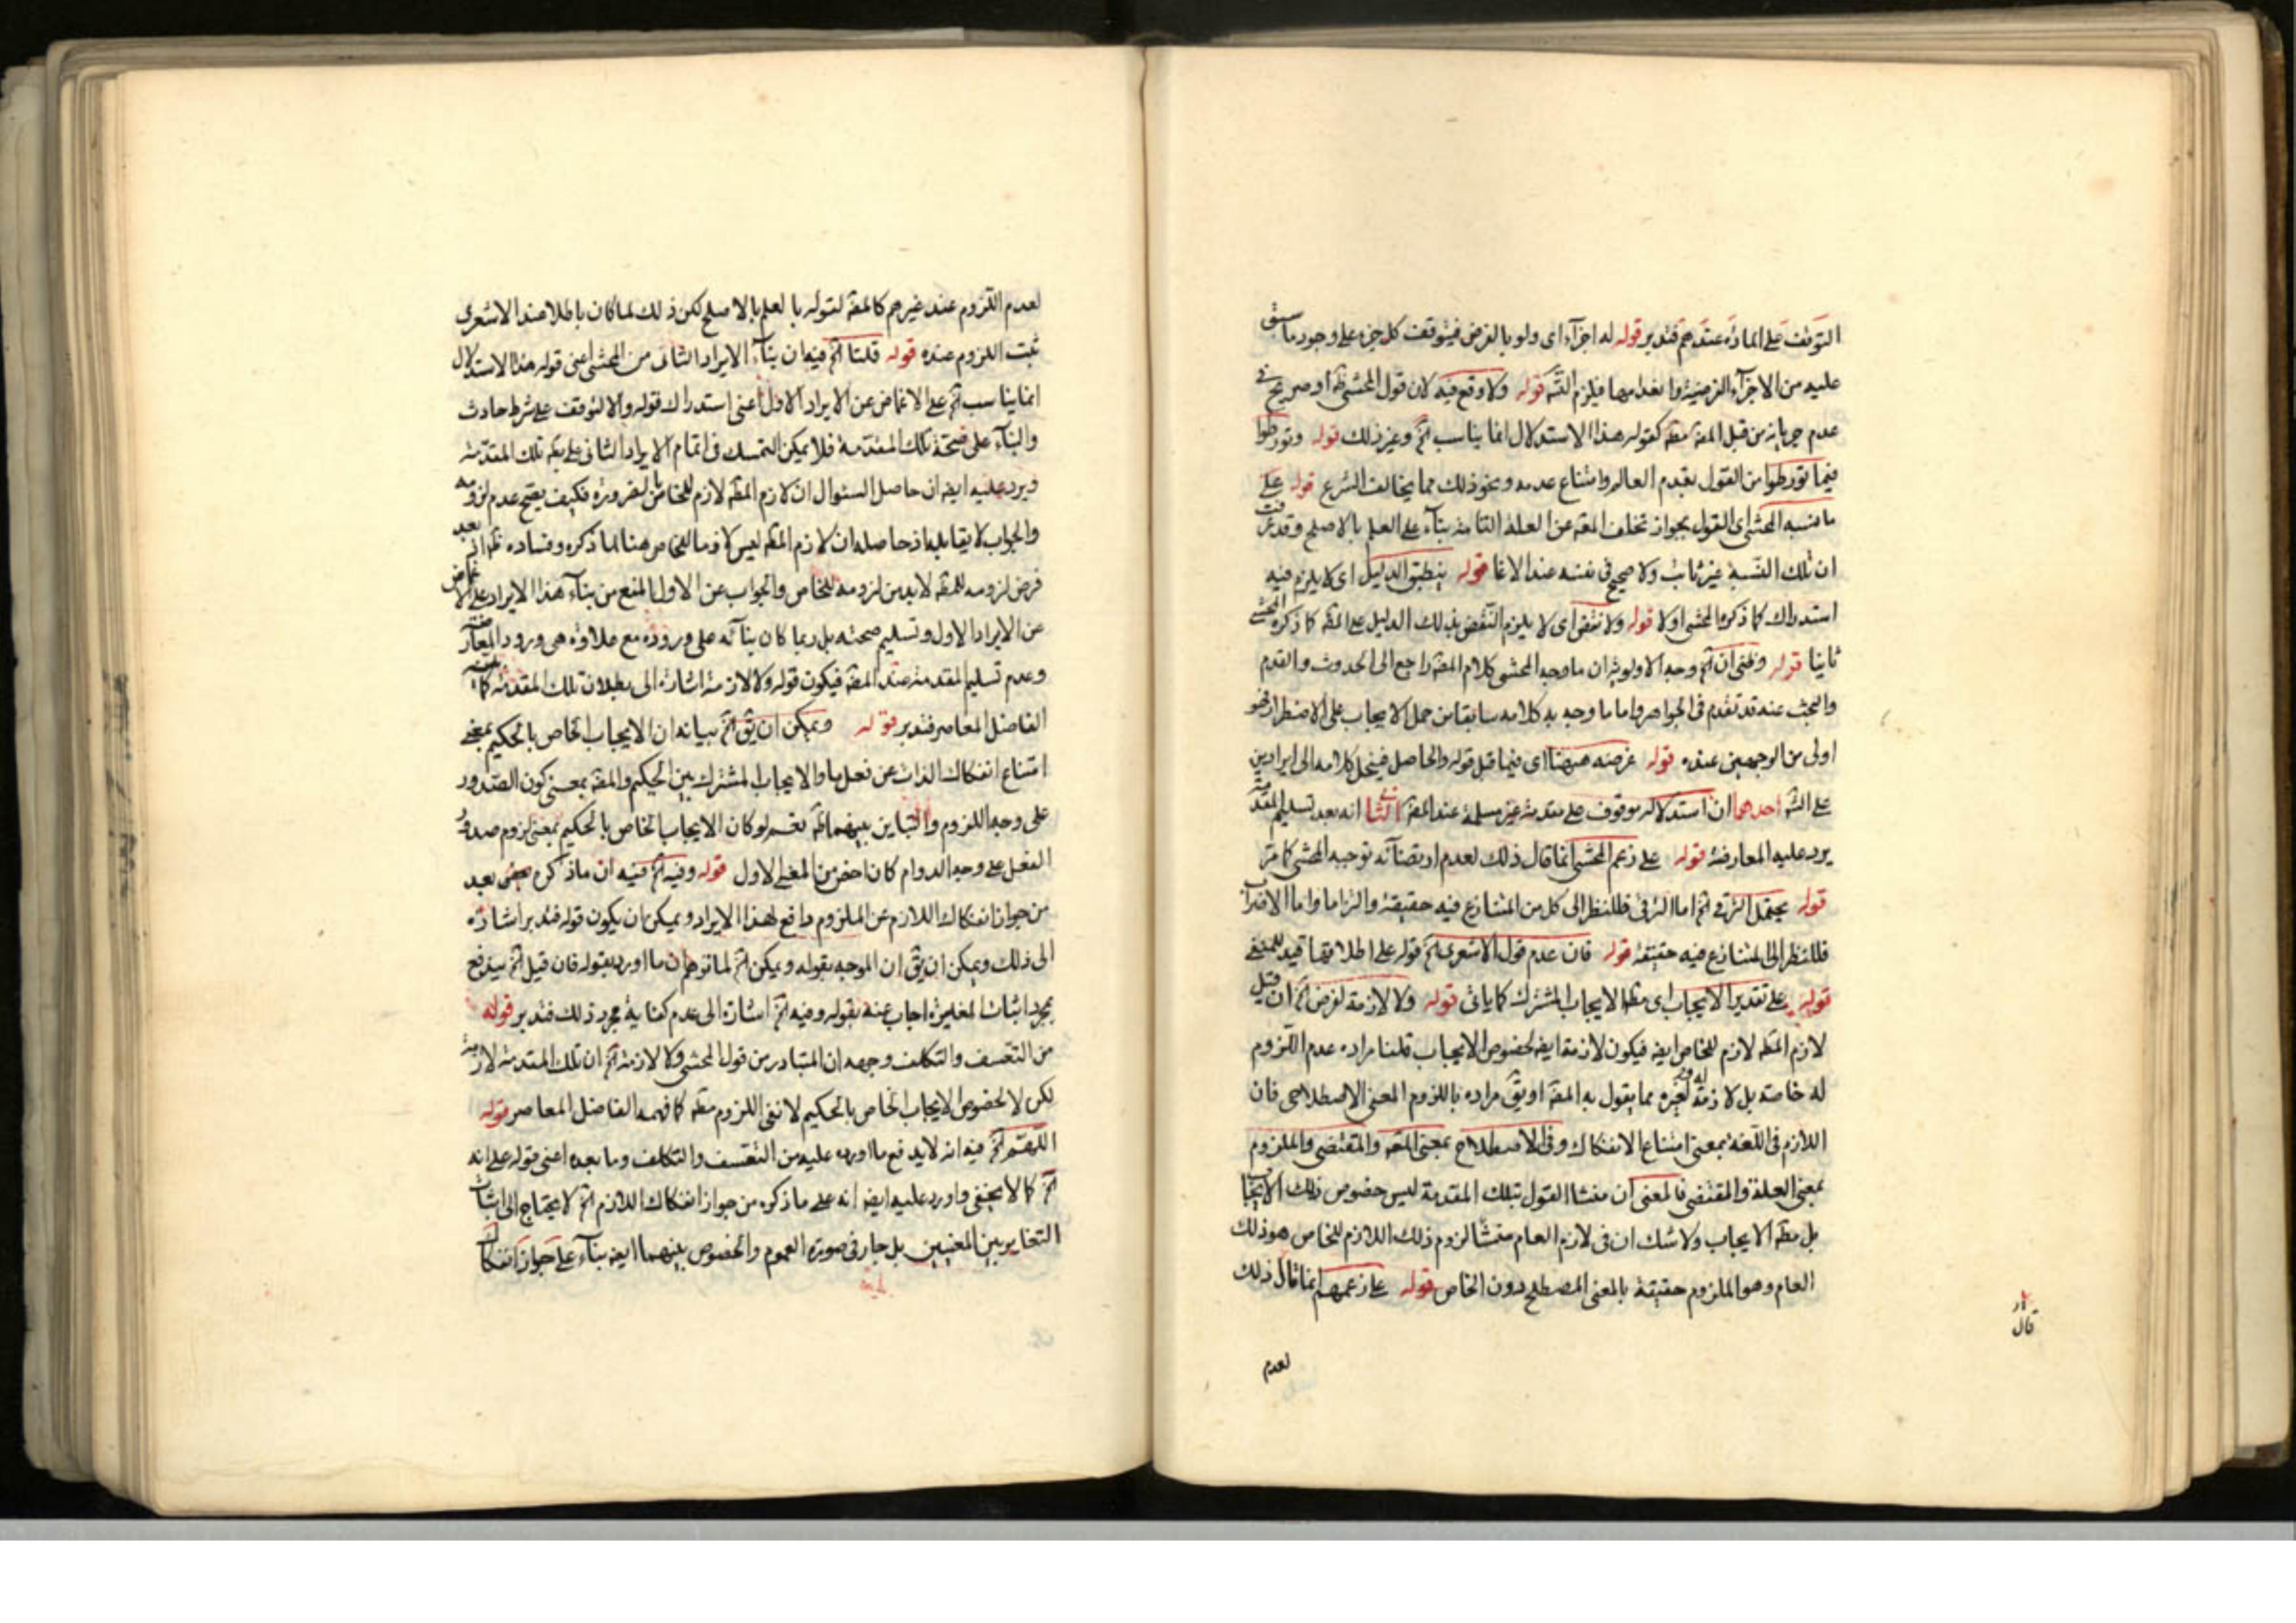 التوقف على المادة عندهم فتدبر قوله له اجزآء اى ولو بالفرض فيتوقف كل جزء على وجود ما سبق
عليه من الاجزآء الفرضية وانعدامها فيلزم التسه قوله ولا وقع فيه لان قول المحشى ظه او صريح فى
عدم جريانه من قبل المصه مطه كقوله هذا الاستدلال انما يناسب آه وغير ذلك قوله وتورطوا
فيما تورطوا من القول بقدم العالم وامتناع عدمه ونحو ذلك مما يخالف الشرع قوله على
ما نسبه المحشى اى القول بجواز تخلف المعه عن العلة التامة بناء على العلم بالاصلح وقد عرفت
ان تلك النسبة غير ثابت ولا صحيح فى نفسه عند الاغا قوله ينطبق الدليل اى لا يلزم فيه
استدراك كما ذكره المحشى اولا قوله ولا نقض اى لا يلزم النقض بذلك الدليل على المصه كما ذكره المحشى
ثانيا قوله وظنى ان آه وجه الاولوية ان ما وجه المحشى كلام المصه راجع الى الحدوث والقدم
والبحث عنه قد تقدم فى الجواهر واما ما وجه به كلامه سابقا من حمل الايجاب على الاضطرار فهو
اولى من الوجهين عنده قوله غرضه ههنا اى فيما قبل قوله والحاصل فينحل كلامه الى ايرادين
على الشه احدهما ان استدلاله موقوف على مقدمة غير مسلمة عند المصه الثانى انه بعد تسليم المقدمة
يرد عليه المعارضة قوله على زعم المحشى انما قال ذلك لعدم ارتضائه توجيه المحشى كما مر
قوله يحتمل الترقى آه اما الترقى فللنظر الى كل من المتنازع فيه حقيقة والتزاما واما الاضراب
فللنظر الى المتنازع فيه حقيقة قوله فان عدم قول الاشعرى آه قوله على اطلاقها قيد للمنفى
قوله على تقدير الايجاب اى مطه الايجاب المشترك كما ياتى قوله ولا لازمة لفرض آه ان قيل
لازم المطه لازم للخاص ايضه فيكون لازمة ايضه لخصوص الايجاب قلنا مراده عدم اللزوم
له خاصة بل لازمة له ولغيره مما يقول به المصه او يق مراده باللزوم المعنى الاصطلاحى فان
اللازم فى اللغة بمعنى امتناع الانفكاك وفى الاصطلاح بمعنى المعه والمقتضى والملزوم
بمعنى العلة والمقتضى فالمعنى ان منشا القول بتلك المقدمة ليس خصوص ذلك الايجاب
بل مطه الايجاب ولا شك ان فى لازم العام منشأ لزوم ذلك اللازم للخاص هو ذلك
العام وهو الملزوم حقيقة بالمعنى المصطلح دون الخاص قوله على زعمهم انما قال ذلك
قال
لعدم
لعدم اللزوم عند غيرهم كالمصه لقوله با لعلم بالاصلح لكن ذلك لما كان باطلا عند الاشعرى
ثبت اللزوم عنده قوله قلنا آه فيه ان بنآء الايراد الثانى من المحشى اعنى قوله هذا الاستدلال
انما يناسب آه على الاغماض عن الايراد الاول اعنى استدراك قوله والا لتوقف على شرط حادث
والبنآء على صحة تلك المقدمة فلا يمكن التمسك فى اتمام الايراد الثانى على تلك المقدمة
ويرد عليه ايضه ان حاصل السئوال ان لازم المطه لازم للخاص بالضرورة فكيف يصح عدم لزومه
والجواب لا يقابله اذ حاصله ان لازم المطه ليس لازما للخاص هنا لما ذكره وفساده ظه اذ بعد
فرض لزومه للمطه لابد من لزومه للخاص والجواب عن الاول المنع من بنآء هذا الايراد على الاغماض
عن الايراد الاول وتسليم صحته بل ربما كان بنآئه على وروده مع علاوة هى ورود المعارضة
وعدم تسليم المقدمة عند المصه فيكون قوله ولا لازمة اشارة الى بطلان تلك المقدمة كما
الفاضل المعاصر فتدبر قوله ويمكن ان يق آه بيانه ان الايجاب الخاص بالحكيم بمعنى
امتناع انفكاك الذات عن فعلها والايجاب المشترك بين الحكيم والمصه بمعنى كون الصدور
على وجه اللزوم والتباين بينهما ظه نعم لو كان الايجاب الخاص بالحكيم بمعنى لزوم صدور
الفعل على وجه الدوام كان اخص من المعنى الاول قوله وفيه آه فيه ان ما ذكره بعيد
من جواز انفكاك اللازم عن الملزوم دافع لهذا الايراد ويمكن ان يكون قوله فتدبر اشارة
الى ذلك ويمكن ان يق ان الموجه بقوله ويمكن آه لما توهم ان ما اورده بقوله فان قيل آه يندفع
بمجرد اثبات المغايرة اجاب عنه بقوله وفيه آه اشارة الى عدم كفاية مجرد ذلك فتدبر قوله
من التعسف والتكلف وجهه ان المتبادر من قول المحشى ولا لازمة آه ان تلك المقدمة لازمة
لكن لا لخصوص الايجاب الخاص بالحكيم لا نفى اللزوم مطه كما فهمه الفاضل المعاصر قوله
اللهم آه فيه انه لا يدفع ما اورده عليه من التعسف والتكلف وما بعده اعنى قوله على انه
آه كما لا يخفى واورد عليه ايضه انه على ما ذكره من جواز انفكاك اللازم آه لا يحتاج الى اثبات
التغاير بين المعنيين بل جار فى صورة العموم والخصوص بينهما ايضه بنآء على جواز انفكاك